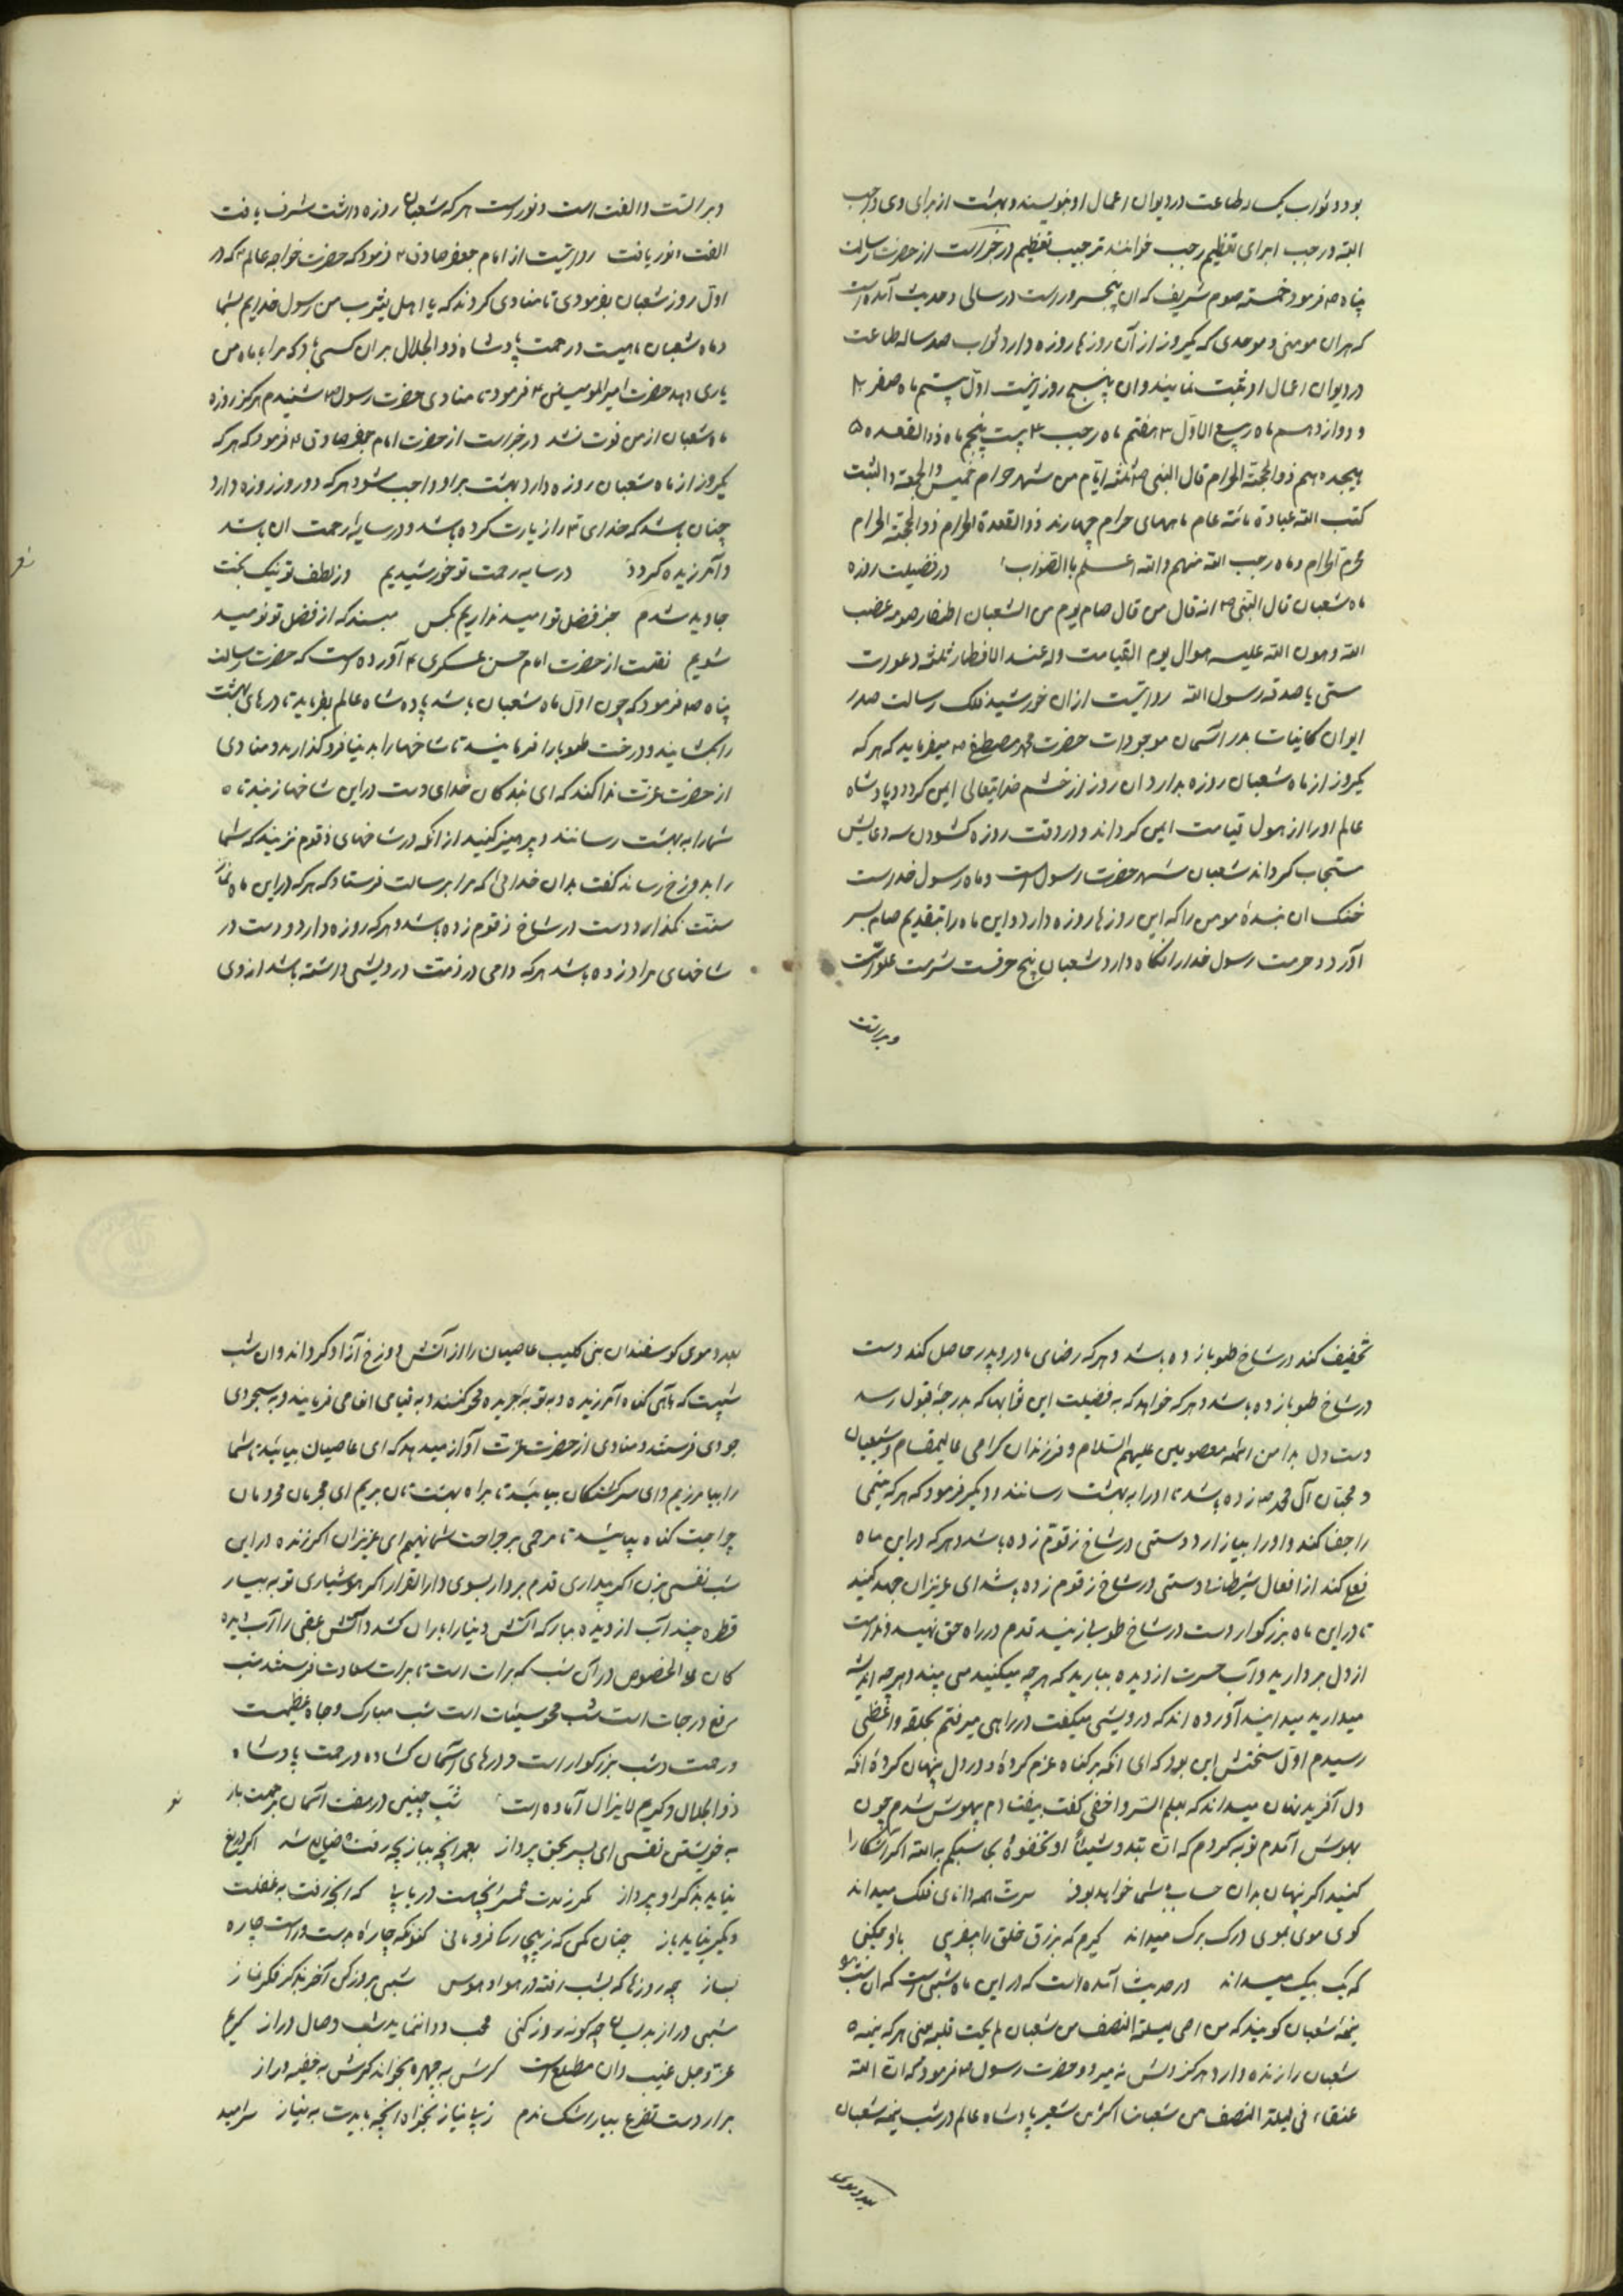 بود و ثواب یکساله طاعت در دیوان اعمال او بنویسند و بهشت از برای وی واجب
البته و رجب از برای تعظیم رجب خوانند ترجیب تعظیم در خبر است از حضرت رسالت
پناه ص فرمود خمسته صوم شریف که آن پنجروز است در سالی و حدیث آمده است
که هر آن مومنی و موحدی که یکروز از آن روزها روزه دارد ثواب صد ساله طاعت
در دیوان اعمال او ثبت نمایند و آن پنج روز اینست اول بیستم ماه صفر
و دوازدهم ماه ربیع الاول ۳ هفتم ماه رجب ۴ بیست پنجم ماه ذو القعده ۵
هیجدهم ذو الحجة الحرام قال النبی ص ثلثه ایام من شهر حرام خمیس و الجمعه و السبت
کتب الله عبادة مائته عام ماههای حرام چهارند ذو القعدة الحرام ذو الحجة الحرام
محرم الحرام و ماه رجب الله منهم و الله اعلم بالصواب در فضیلت روزه
ماه شعبان قال النبی ص انه قال من قال صام یوم من الشعبان اطفار صومه غضب
الله و هون الله علیه هوال یوم القیامت وله عند الافطار ثلثه دعورت
ستی یا صدقه رسول الله روایتیست از آن خورشید فلک رسالت صدر
ایوان کاینات بدر آسمان موجودات حضرت محمد مصطفی ص میفرماید که هر که
یکروز از ماه شعبان روزه بدارد آن روز از خشم خدایتعالی ایمن کردد و پادشاه
عالم او را از هول قیامت ایمن کرداند و در وقت روزه کشودن سه دعایش
مستجاب کرداند شعبان شهر حضرت رسول است و ماه رسول خداست
خنک آن بندهٔ مومن را که این روزها روزه دارد و این ماه را بتقدیم صیام بسر
آورد و حرمت رسول خدا را نکاه دارد شعبان پنج حرفست شرمت علواست
و برات
و بر الست و الفت است و نور است هر که شعبان روزه داشت شرف یافت
الفت و نور یافت روایتیست از امام جعفر صادق ع فرمود که حضرت خواجه عالم که در
اول روز شعبان بفرمودی تا منادی کردند که یا اهل یثرب من رسول خدایم بشما
و ماه شعبان ماهیست و رحمت پادشاه ذو الجلال بر آن کسی باد که مرا به ماه من
یاری دهد حضرت امیر المومنین ع فرمود تا منادی حضرت رسول ص شنیدم هرکز روزه
ماه شعبان از من فوت نشد در خبر است از حضرت امام جعفر صادق ع فرمود که هر که
یکروز از ماه شعبان روزه دارد بهشت بر او واجب شود هر که دو روز روزه دارد
چنان باشد که خدای تع را زیارت کرده باشد و در سایه رحمت آن باشد
و آمرزیده کردد در سایه رحمت تو خورشیدیم وز لطف تو نیک بخت
جاوید شدم جز فضل تو امید نداریم بکس مپسند که از فضل تو نومید
شویم نقلست از حضرت امام حسن عسکری ع آورده است که حضرت رسالت
پناه ص فرمود که چون اول ماه شعبان باشد پادشاه عالم بفرماید تا درهای بهشت
را بکشایند و درخت طوبا را فرمایند تا شاخها را بدنیا فرو کذارید و منادی
از حضرت عزت ندا کند که ای بندکان خدای دست در این شاخها زنید تا ه
شما را به بهشت رسانند و پرهیز کنید از آنکه در شاخهای زقوم نزنید که شما
را بدوزخ رساند کفت بدان خدائی که مرا برسالت فرستاد که هر که در این ماه نماز
سنت بکذارد دست در شاخ زقوم زده باشد و هر که روزه دارد و دست در
شاخهای مراد زده باشد هر که دامی در ذمت درویشی داشته باشد از وی
تخفیف کند در شاخ طوبا زده باشد و هر که رضای مادر و پدر حاصل کند دست
در شاخ طوبا زده باشد و هر که خواهد که به فضیلت این ثوابها که بدرجه قبول رسد
دست دل بدامن ائمه معصومین علیهم السلام و فرزندان کرامی عالیمقام و شیعیان
و محبان آل محمد ص زده باشد تا او را به بهشت رسانند و دیکر فرمود که هر که یتیمی
را جفا کند و او را بیازارد دستی در شاخ زقوم زده باشد و هر که در این ماه
فعل کند از افعال شیطان دستی در شاخ زقوم زده باشد ای عزیزان جهد کنید
تا در این ماه بزرکوار دست در شاخ طوبی زنید قدم در راه حق نهید و ندامت
از دل بردارید و آب حسرت از دیده ببارید که هر چه میکنید می بیند و هر چه اندیشه
میدارید میداند آورده اند که درویشی میکفت در راهی میرفتم بحلقه واعظی
رسیدم اول سخنش این بود که ای آنکه بر کناه عزم کردهٔ و در دل پنهان کردهٔ آنکه
دل آفرید نهان میداند که یعلم السر و اخفی کفت بیفتادم بیهوش شدم چون
بهوش آمدم توبه کردم که ان تبدو شیئا او تخفوه یحاسبکم به الله اکر آشکارا
کنید اکر پنهان بدان حساب شما خواهد بود سرت همه دانای فلک میداند
کوی موی بموی و رک برک میداند کیرم که بزرق خلق را بفریبی با او چکنی
که یک بیک میداند در حدیث آمده است که در این ماه شبی است که آن شب را
نیمهٔ شعبان کویند که من احی لیلته النصف من شعبان لم یمت قلبه یعنی هر که نیمه ه
شعبان را زنده دارد هرکز دلش نمیرد و حضرت رسول ص فرمود که ان الله
عتقاء فی لیلة النصف من شعبان اکثر من شعیر پادشاه عالم در شب نیمه شعبان
بعدد موی
بعدد موی کوسفندان بنی کلیب عاصیان را از آتش دوزخ آزاد کرداند و آن شب
شبیست که بآهی کناه آمرزیده و به توبه جریده محو کنند و به قیامی انعامی فرمایند و به سجودی
جودی فرستند و منادی از حضرت عزت آواز میدهد که ای عاصیان بیائید تا شما
را بیامرزیم و ای سرکشتکان بیائید تا براه بهشت تان بریم ای مجرمان محرومان
جراحت کناه بیائید تا مرهمی بر جراحت شما نهیم ای عزیزان اکر زنده در این
شب نفسی بزن اکر بیداری قدم بردار بسوی دار القرار اکر هوشیاری توبه بیار
قطره چند آب از دیده ببار که آتش دنیا را باران کشد و آتش عقبی را آب دیده
کان علی الخصوص در آن شب که برات است تا برات سعادت فرستند شب
رفع درجات است شب محو سیئات است شب مبارک و جاه عظیمست
و رحمت و شب بزرکوار است و درهای آسمان کشاده و رحمت پادشاه
ذو الجلال و کریم لایزال آماده است شب چنین در هفت آسمان برحمت باز
به خویشتن نفسی ای پسر بحق پرداز بعمر آنچه ببازیچه رفت و ضایع شد اکر دریغ
نیاید بذکر او پرداز کمر مدت عمر آنچه هست دریابی که آنچه رفت به غفلت
دیکر نیاید باز چنان مکن که ز بیچارکی فرو مانی کنونکه چاره بدست در است چاره
بساز چه روزها که بشب رفته در هوا و هوس شبی بروز کن آخر بذکر و فکر و نماز
شبی دراز بدینسان چکونه روز کنی محب دوا نماید شب وصال دراز کریم
عز و جل غیب دان مطلع است کرش به جهره بخوانند کرش به خفیه و راز
برار دست تضرع ببار اشک ندم ز بی نیاز بخواه آنچه بایدت به نیاز سر امید